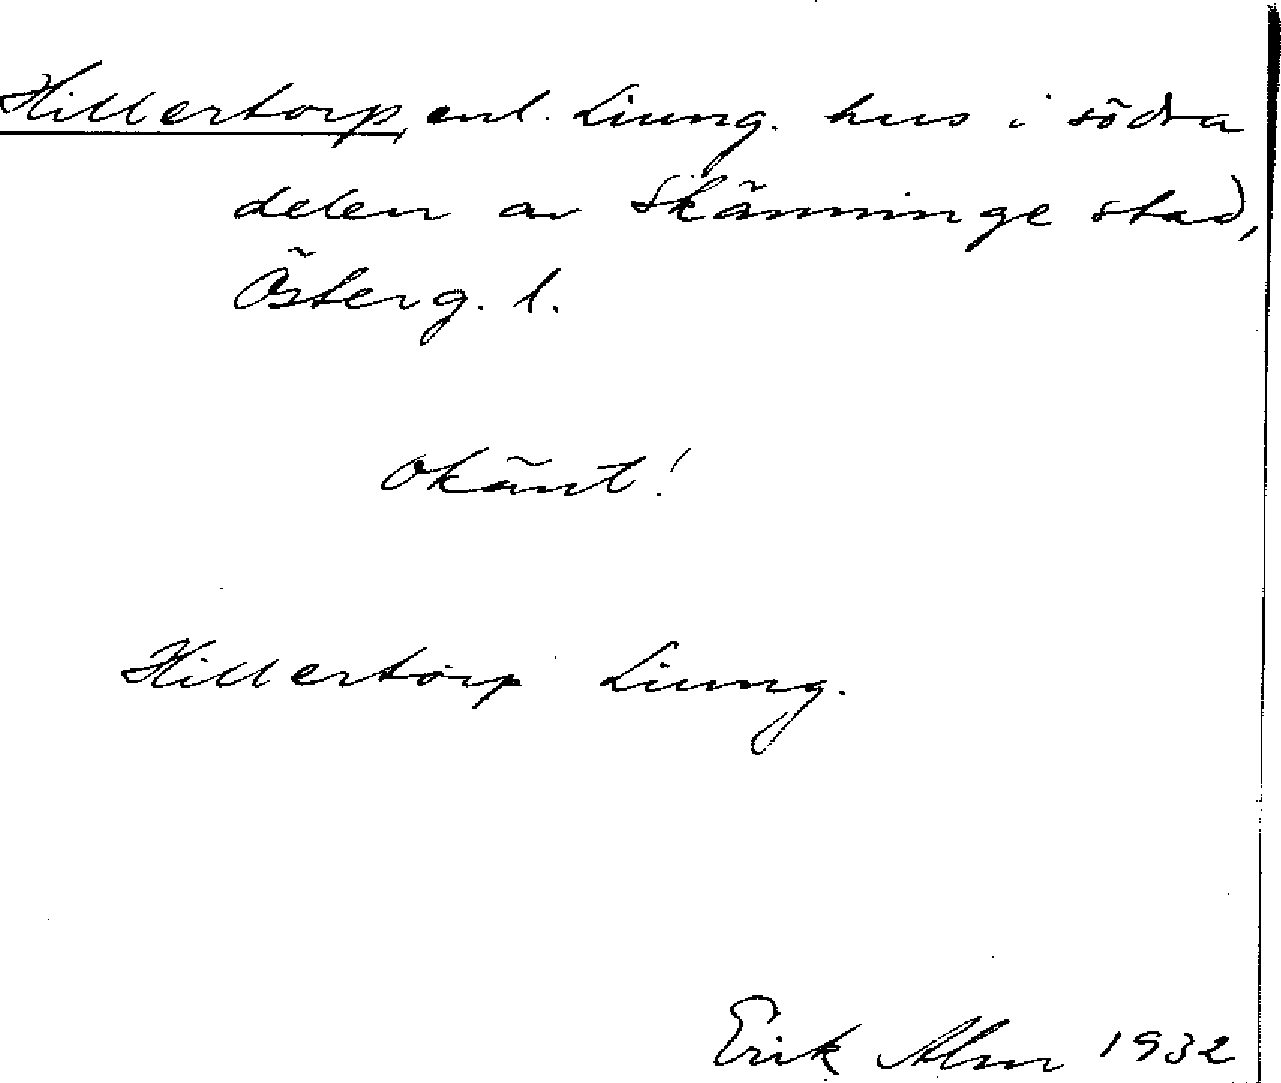 Hillertorp, enl. Liung. hus i södra
delen av Skänninge stad,
Österg. l.
Okänt!
Hillertorp Liung.
Erik Alm 1932